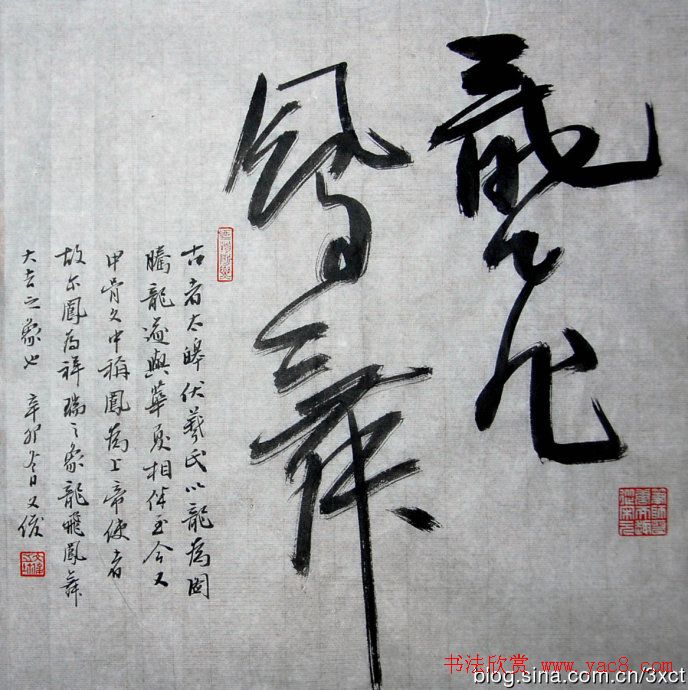 龍飛
鳳舞
古者太皞伏羲氏以龍為圖
騰龍遂與華夏相伴至今又
甲骨文中稱鳳為上帝使者
故尔鳳為祥瑞之象龍飛鳳舞
大吉之象也 辛卯冬日
书法欣赏 www.yac8.com
blog.sina.com.cn/3xct